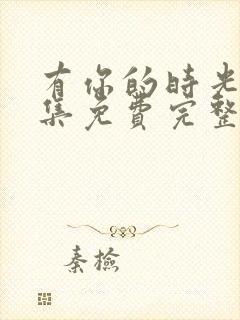 有你的时光
集免费完整
秦检